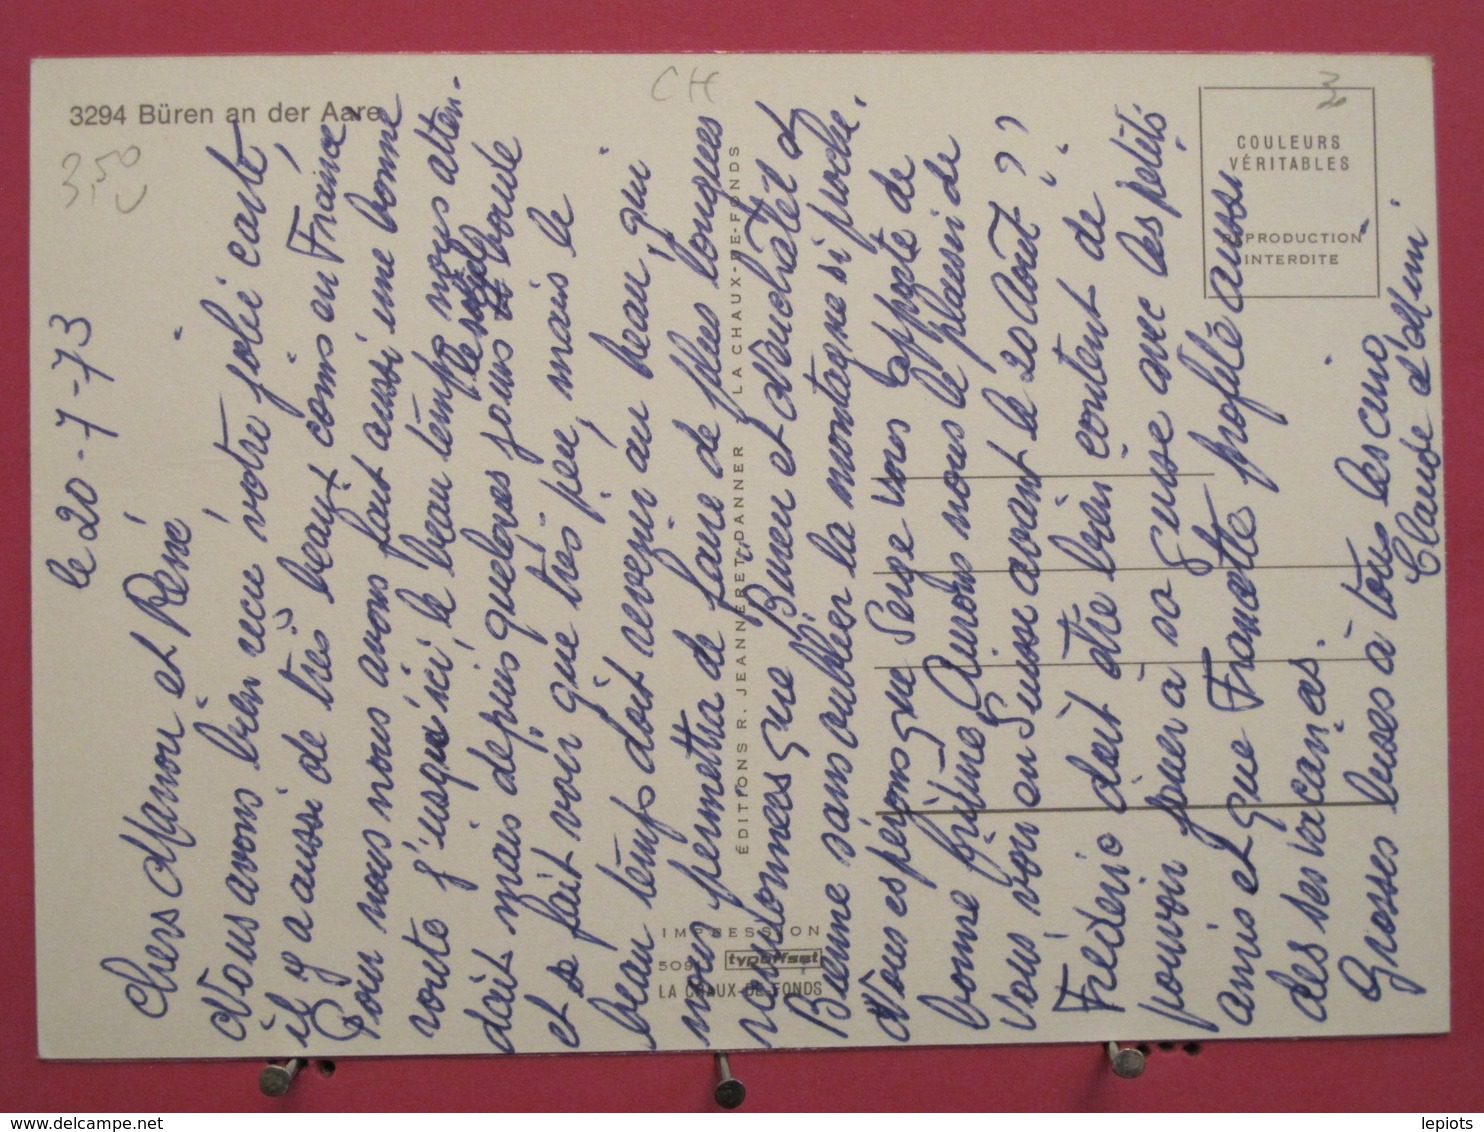 3294 Büren an der Aare
CH
3,50
COULEURS
VÉRITABLES
REPRODUCTION
INTERDITE
ÉDITIONS R. JEANNERET-DANNER LA CHAUX-DE-FONDS
IMPRESSION
typoffset
509
LA CHAUX-DE-FONDS
le 20-7-73
Chers Manou et René
Nous avons bien reçu votre jolie carte,
il y a aussi de très beaux coins en France
Pour nous nous avons fait aussi une bonne
route j'usqu'ici, le beau temps nous atten-
dait mais depuis quelques jours le soleil boude
et se fait voir que très peu, mais le
beau temps doit revenir au beau, qui
nous permettra de faire de plus longues
randonnées que Büren et Neuchâtel et
Bienne sans oublier la montagne si proche.
Nous espérons que Serge vous apporte de
bonne fritune, Aurons nous le plaisir de
vous voir en Suisse avant le 20 Août ??
Fréderic doit être bien content de
pouvoir jouer à sa guise avec les petits
amis et que Francette profite aussi
des ses vacances.
Grosses bises à tous les cinq
Claude d'Mimi.
lepiots
www.delcampe.net